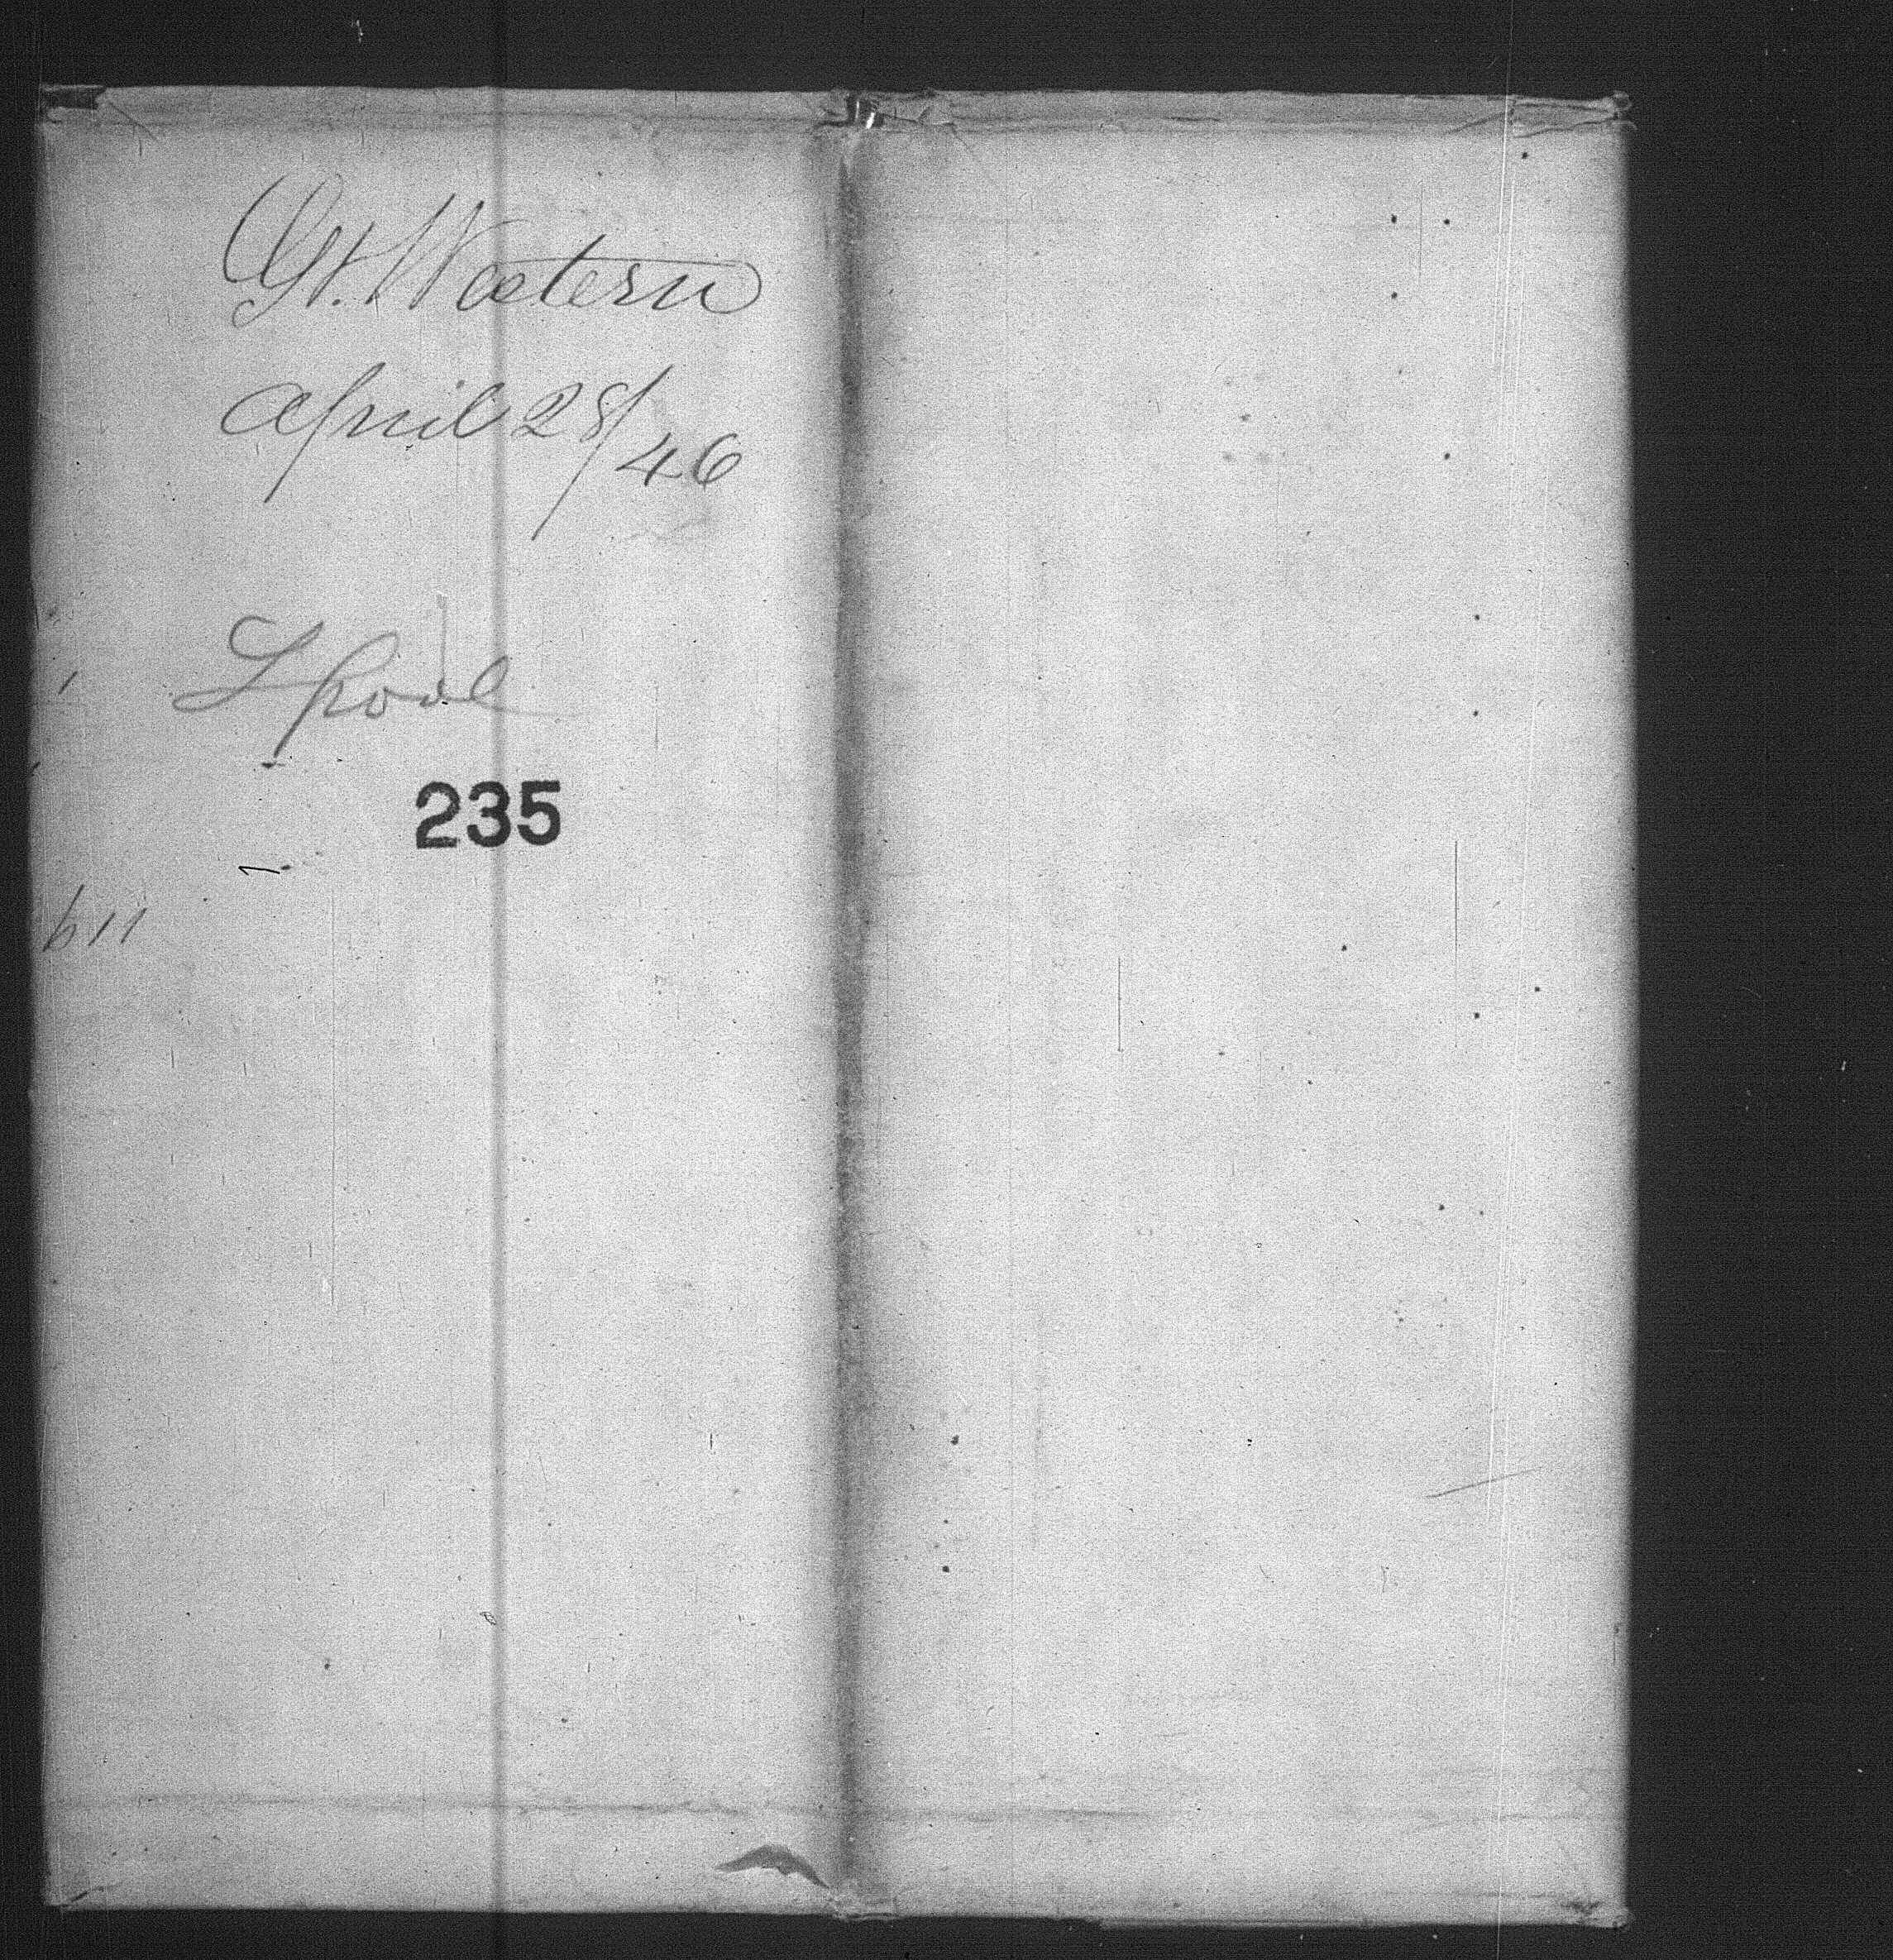 Gt. Western
April 28/46
Lpool
235